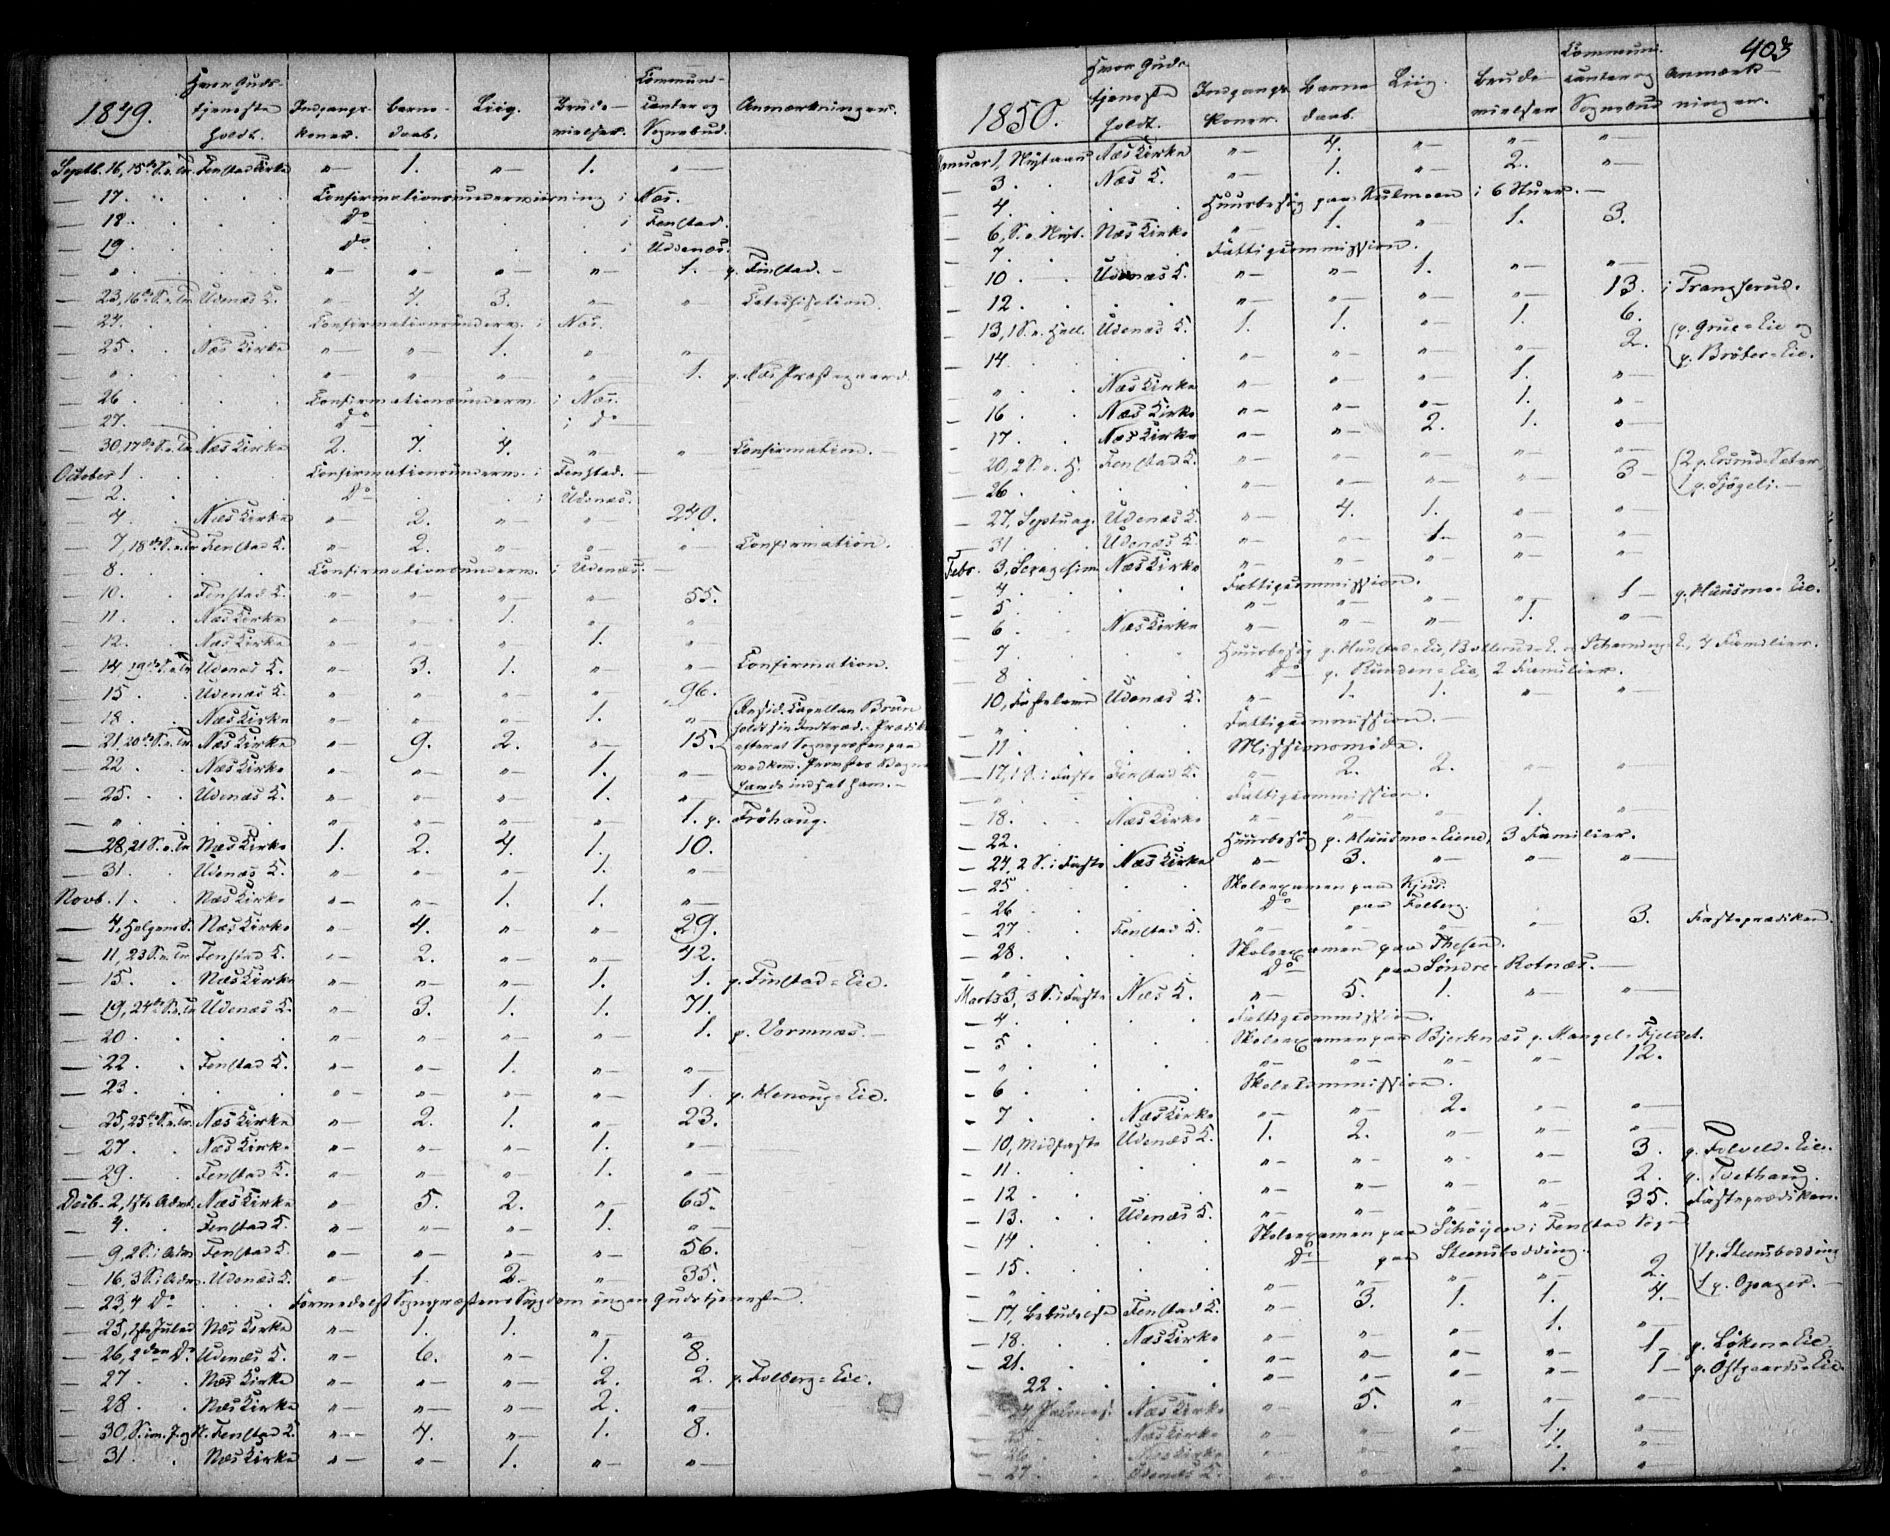 403
1849. Hvor Guds- Indgangs- Barne- Liig. Brude- Commini- Anmærkninger.
tjeneste koner. daab. vielser. canter og
holdt. Sognebud.
Septb. 16, 15de S. e. Tr. Fenstad Kirke „— 1. „— 1. „—
— 17. Confirmationsunderviisning i Næs.
— 18. Do i Fenstad.
— 19. Do i Udenæs.
— „ „— „— „— „— 1. p. Finstad.
— 23, 16de S. e. Tr. Udenæs K. „— 4. 3. „— „ Catechisation.
— 24. Confirmationsunderv. i Næs.
— 25. Næs Kirke „— „— 1. „ „—
— „ „— „— „— „ 1. p. Næs Præstegaard.
— 26 Confirmationsunderv. i Næs.
— 27. Do i Do
— 30, 17de S. e. Tr. Næs Kirke 2. 7. 4. „— „ Confirmation.
October 1 Confirmationsunderv. i Fenstad.
— 2. Do i Udenæs.
— 4. Næs Kirke „— 2. „— „— 240.
— 7, 18de S. e. Tr. Fenstad K. „— 2. „— „— „ Confirmation.
— 8. Confirmationsunderv. i Udenæs.
— 10. Fenstad K. „— „— „— „— 55.
— 11. Næs Kirke „— „— 1. „ „
— 12. Næs Kirke „— „— „— 1. „—
— 14, 19de S. e. Tr. Udenæs K. „— 3. 1. „— „— Confirmation.
— 15. Udenæs K. „— „— „— „— 96.
— 18. Næs Kirke „— „— „— 1. „— Resid. Capellan Brun
— 21, 20de S. e. Tr. Næs Kirke „— 9. 2. „— 15. holdt sin Indtræd.-Prædik
efterat Sognepræsten paa
— 22 Næs Kirke „— „— „— 1. „—
— 25. Udenæs K. „— „— „— 1. „— indsat ham.
— „ „— „— „— „— 1. p. Frøhaug.
— 28, 21 S. e. Tr. Næs Kirke 1. 2. 4. 1. 10.
— 31. Udenæs K. „— „— „— 1. „—
Novb. 1. Næs Kirke „— „— 1. 1. „—
— 4, Helgens S. Næs Kirke „— 4. „— „— 29.
— 11, 23 S. e. Tr. Fenstad K. „— 2. „— „— 42.
— 15. Næs Kirke „— „— „— 1. 1. p. Finstad-Eie.
— 19, 24de S. e. Tr. Udenæs K. „— 3. 1. 1. 71.
— 20 „— „— „— „— 1. p. Vormnæs.
— 22. Fenstad K. „— „— 1. „— „—
— 23. „— „— „— „— 1. p. Henoug-Eie.
— 25, 25de S. e. Tr. Næs Kirke „— 2. 1. „— 23.
— 27. Næs Kirke „— „— „— 1. „—
— 29. Fenstad K. „— „— „— 1. „—
Decb. 2, 1ste Advt. Næs Kirke „— 5. 2. „— 65.
— 4. Fenstad K. „— „— „— 1. „—
— 9, 2 S. i Adv. Fenstad K. „— „— „— „— 56.
— 16, 3 S. i Adv. Udenæs K. „— 1. 2. „— 35.
— 23, 4 Do Formedelst Sognepræstens Sygdom ingen Gudstjeneste.
— 25, 1ste Juled. Næs Kirke „— 1. 1. „— „—
— 26, 2den Do Udenæs K. „— 6. „— 1. 8.
— 27 Næs Kirke „— „— „— 2. 2. p. Folberg-Eie.
— 28 Næs Kirke „— „— „— 2. „—
— 30, S. im. J. og N. Fenstad K. „— 4. „— 1. 8.
— 31. Næs Kirke „— „— 1. „— „—
1850. Hvor Guds- Indgangs- Barne- Liig. Brude- Communi- Anmærk-
tjeneste koner. daab. vielser canter og ninger.
holdt. Sognebud
Januar 1, Nytaar Næs Kirke „— 4. „— „— „—
— 3. Næs K. „— 1. „— 2. „—
— 4. Huusbesøg paa Kulmoen i 6 Huse.
— 6, S. e. Nyt. Næs Kirke „— 1. „ 1. 3.
— 7. Fattigcommission.
— 10. Udenæs K. „— „— 1. „— „—
— 12. „— „— „— „— 13. i Transerud.
— 13, 1 S. e. Hell. Udenæs K. 1. 1. „— 1. 6.
— 14. „— „— „— „— 2. p. Grue-Eie og
p. Brøter-Eie.
— „ Næs Kirke „— „— „— 1. „—
— 16. Næs Kirke „— „— „— 1. „—
— 17. Næs Kirke „— „— 2. 1. „—
— 20, 2 S. e. H. Fenstad K. „— „— „— „— „—
— 26. „— „— „— „— 3 2 p. Sæter,
1 p. Sjøgli.
— 27, Septuag. Udenæs K. „— 4. 1. „— „—
— 31 Udenæs K. „— „— 1. „— „—
Febr. 3, Sexagesim. Næs Kirke „— „— „— „— „—
— 4. Fattigcommission.
— 5. „— „— „— „— 1 p. Huusmo-Eie.
— 6. Næs Kirke „— „— „— 1. „—
— 7 Huusbesøg p. 4 Familier.
— 8 Do p. Runden-Eie, 2 Familier.
— 10, Fastelavn Udenæs K. „— 1. 1. „— „—
— „ Fattigcommission.
— 11. Missionsmøde.
— 17, 1 S. i Faste Fenstad K. „— 2. 2. „— „—
— „ Fattigcommission.
— 18. Næs Kirke „— „— „— 1. „—
— 22. Huusbesøg p. Huusmo-Eiend. 3 Familier.
— 24, 2 S. i Faste Næs Kirke „— 3. „— „— „—
— 25 Skoleexamen paa Kjus.
— 26 Do paa Folberg.
— 27 Fenstad K. „— „— „— „— 3. Fasteprædiken.
— 28. Skoleexamen paa Thesen.
— „ Do paa Søndre-Rotnæs.
Marts 3, 3 S. i Faste Næs K. „— 5. 1. „— „—
— 4. Fattigcommission.
— 5. Skoleexamen paa Bjerknæs p. Mangel-Fjeldet.
— „ „— „— „— „— 12.
— 6. Skolecommission.
— 7 Næs Kirke „— „— 2. „— „—
— 10, Midfaste Udenæs K. 1. 2. „— „— „—
— 11. „— „— „— „— 3. p. Folveld-Eie.
— 12 „— „— „— „— 2. p. Tvethaug.
— 13. Udenæs K. „— „— „— „— 35. Fasteprædiken.
— 14 Skoleexamen paa Schøyen i Fenstad Sogn
— 15. Do paa Steensbodding.
— „ „— „— „— „— 2. 1 p. Steensbodding
1 p. Opager.
— 17, Bebudelse Fenstad K. „— 3. 1. 1. 4.
— 18. Næs Kirke „— „— „— 1. „—
— 21. „— „— „— „— 1 p. Løken-Eie
22 „— „— „— „— 1 p. Østgaards-Eie
— 24 Palmes. Næs Kirke „— 5. „— „— „—
— 25 Næs Kirke „— „— „— 1. „—
— 26 Næs Kirke „— „— „— 1. „—
— 27 Udenæs K. „— „— „— 1. „—